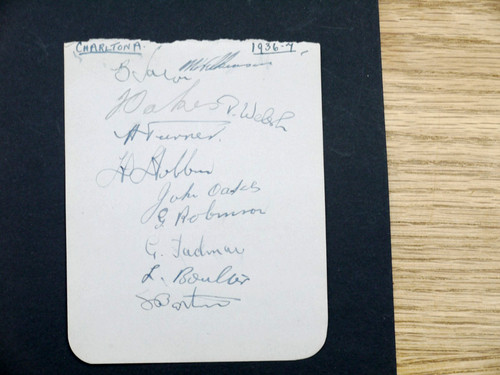 CHARLTON A. 1936-7.
Oakes D. Welsh
A Turner.
H Hobbis
John Oakes
G Robinson
G. Tadman
L. Boulter